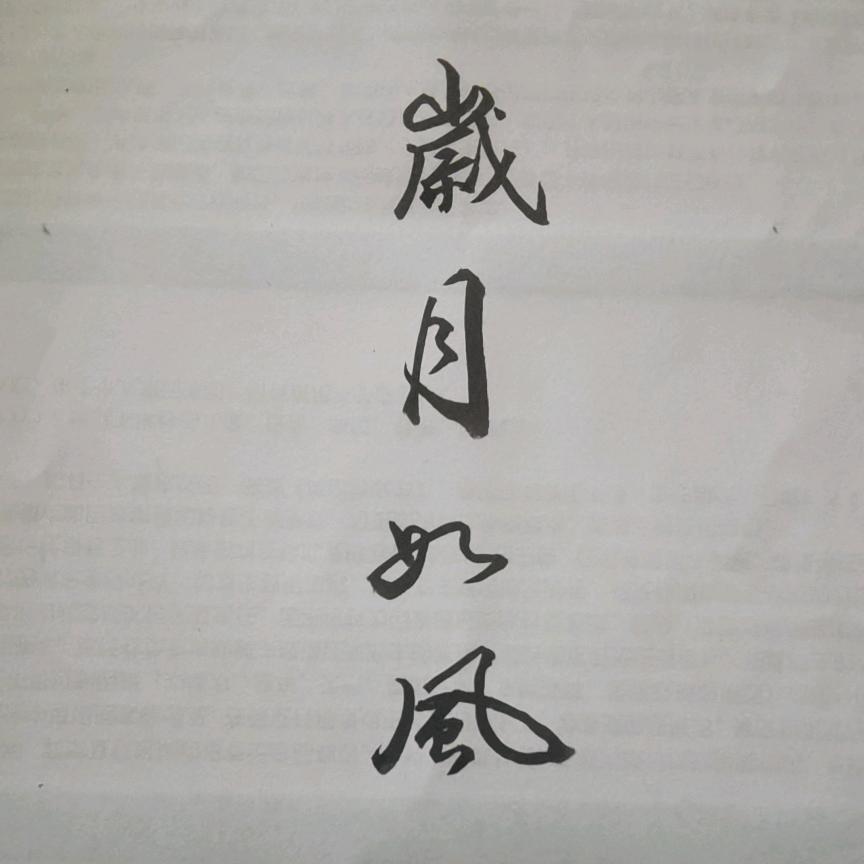 歲月如風